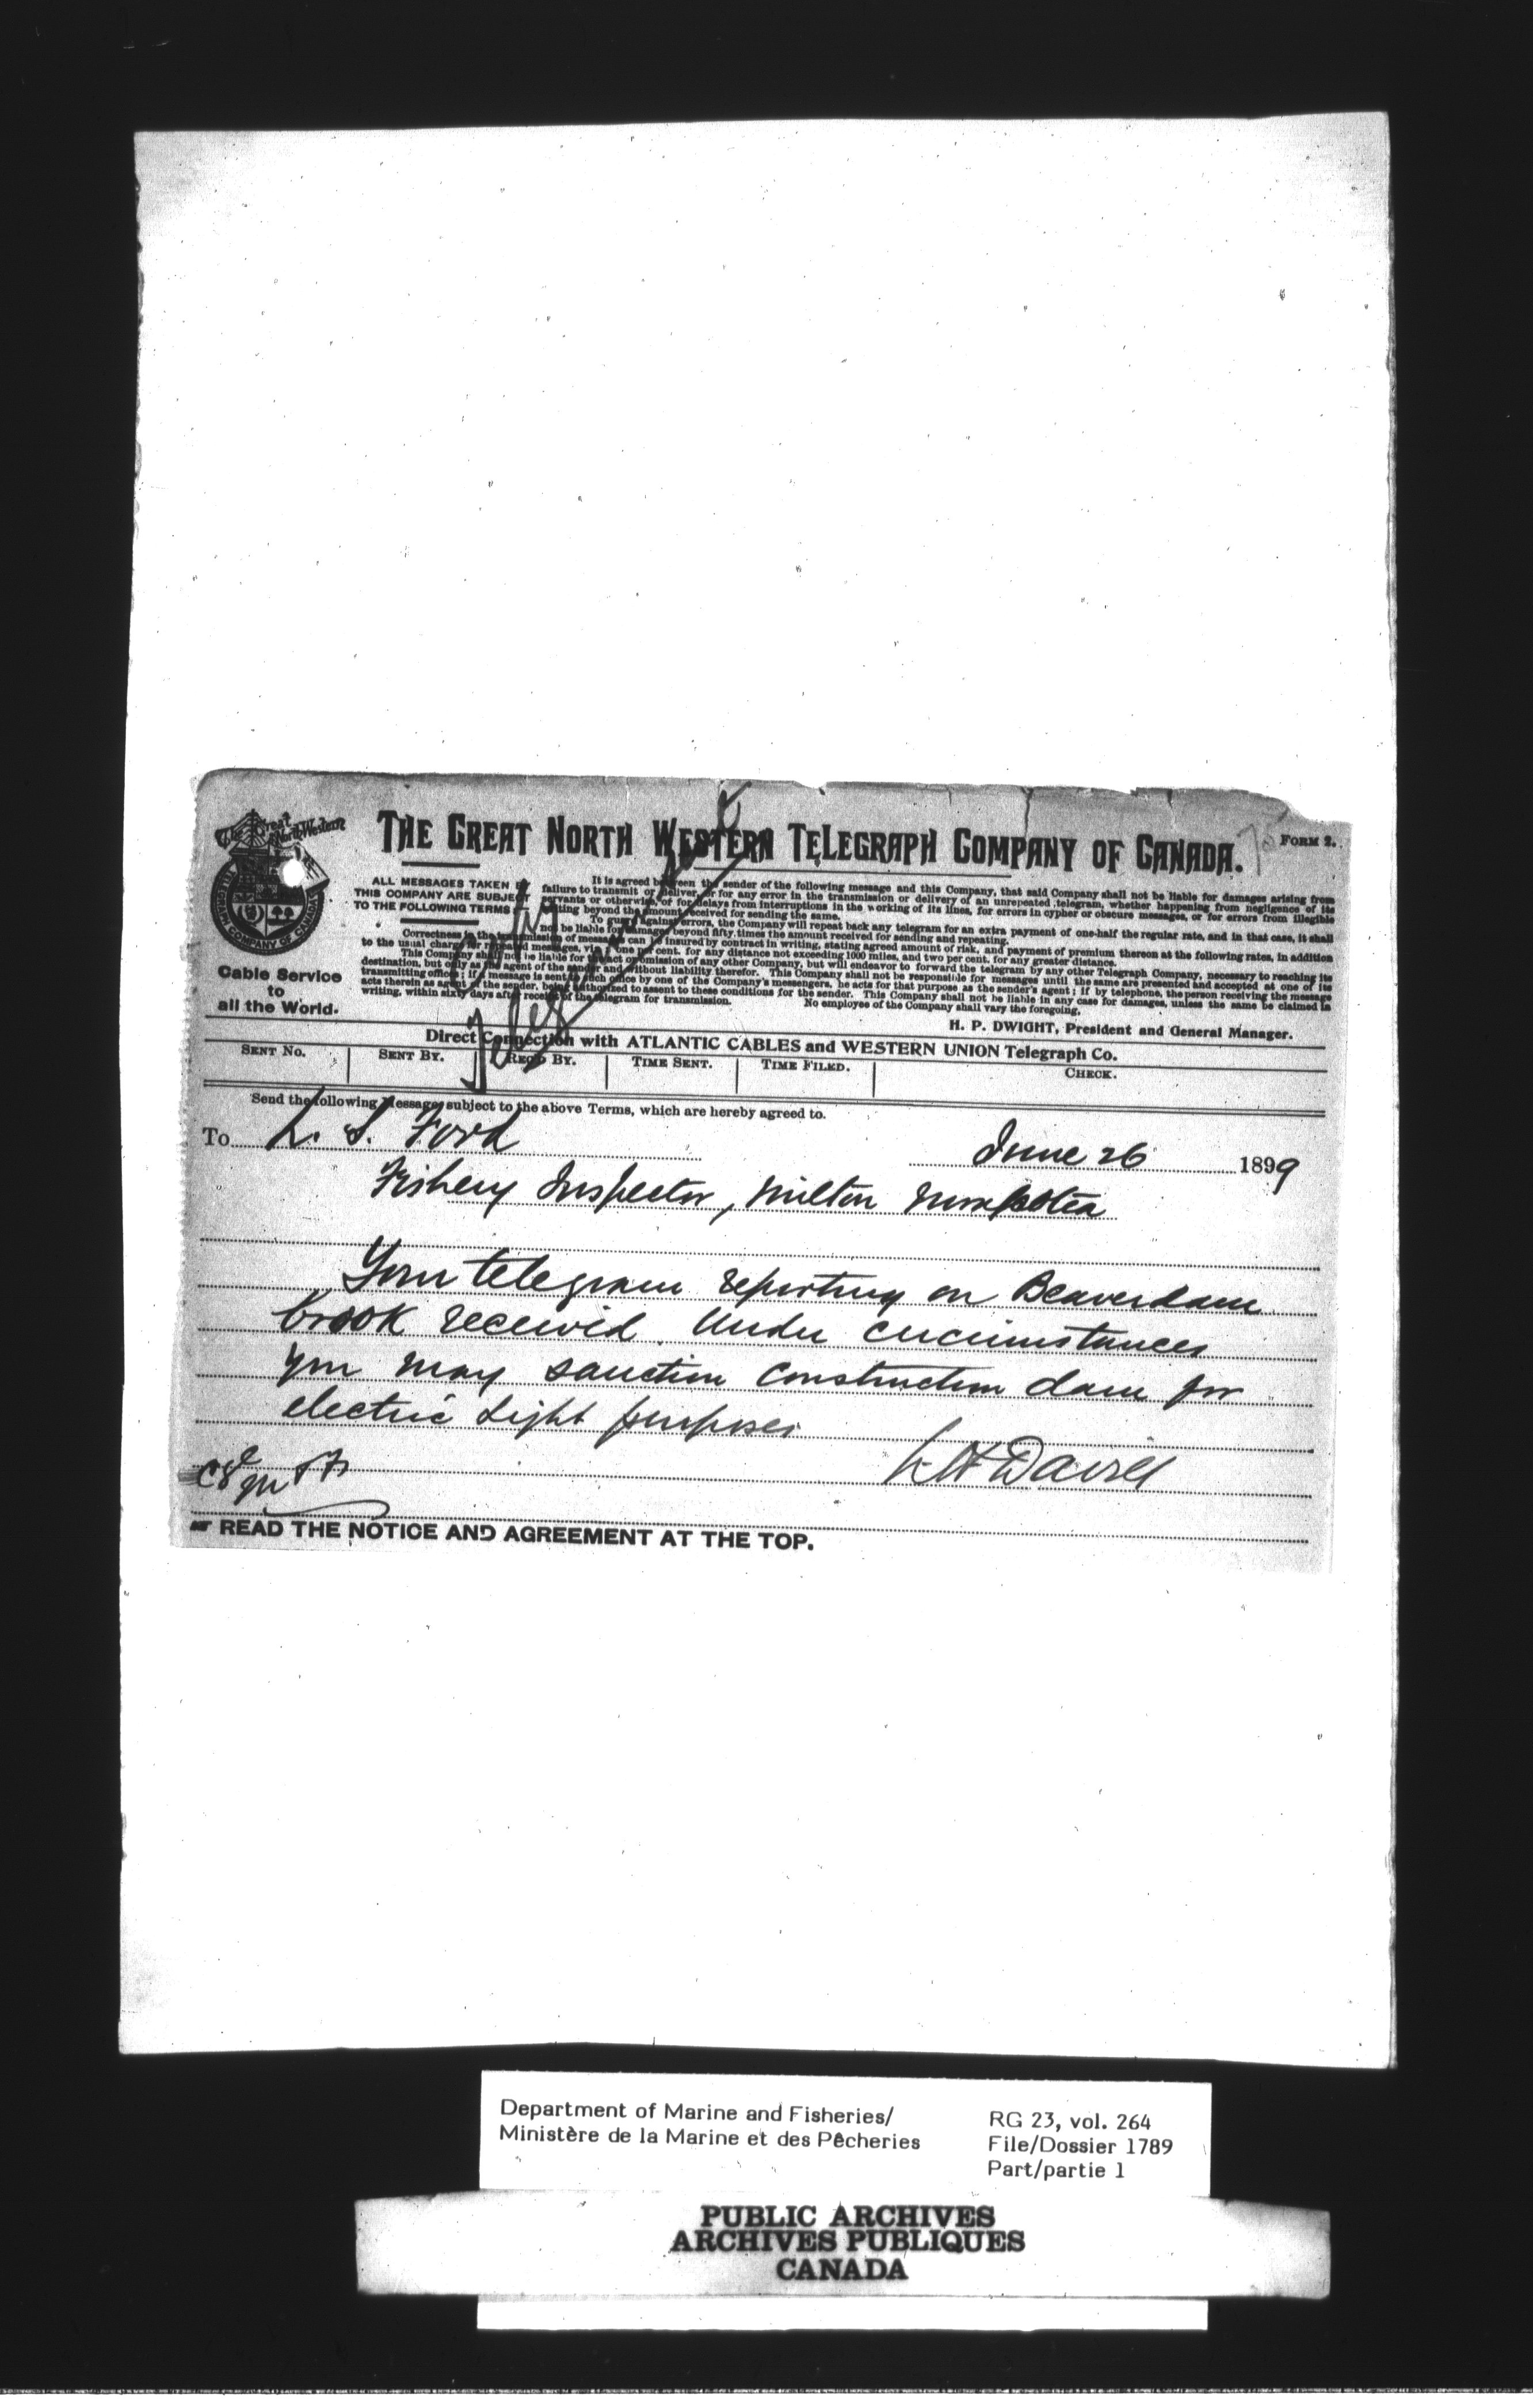 THE GREAT NORTH WESTERN TELEGRAPH COMPANY OF CANADA.
FORM 2.
75
The Great North Western
TELEGRAPH COMPANY OF CANADA
Cable Service
to
all the World.
ALL MESSAGES TAKEN BY
THIS COMPANY ARE SUBJECT
TO THE FOLLOWING TERMS
It is agreed between the sender of the following message and this Company, that said Company shall not be liable for damages arising from
failure to transmit or deliver, or for any error in the transmission or delivery of an unrepeated telegram, whether happening from negligence of its
servants or otherwise, or for delays from interruptions in the working of its lines, for errors in cypher or obscure messages, or for errors from illegible
writing beyond the amount received for sending the same.
To guard against errors, the Company will repeat back any telegram for an extra payment of one-half the regular rate, and in that case, it shall
not be liable for damages beyond fifty times the amount received for sending and repeating.
Correctness in the transmission of messages can be insured by contract in writing, stating agreed amount of risk, and payment of premium thereon at the following rates, in addition
to the usual charge for repeated messages, viz: one per cent. for any distance not exceeding 1000 miles, and two per cent. for any greater distance.
This Company shall not be liable for the act or omission of any other Company, but will endeavor to forward the telegram by any other Telegraph Company, necessary to reaching its
destination, but only as the agent of the sender and without liability therefor. This Company shall not be responsible for messages until the same are presented and accepted at one of its
transmitting offices; if a message is sent to such office by one of the Company's messengers, he acts for that purpose as the sender's agent; if by telephone, the person receiving the message
acts therein as agent of the sender, being authorized to assent to these conditions for the sender. This Company shall not be liable in any case for damages, unless the same be claimed in
writing, within sixty days after receipt of the telegram for transmission. No employee of the Company shall vary the foregoing.
H. P. DWIGHT, President and General Manager.
Direct Connection with ATLANTIC CABLES and WESTERN UNION Telegraph Co.
SENT NO. SENT BY. REC'D BY. TIME SENT. TIME FILED. CHECK.
Send the following Message, subject to the above Terms, which are hereby agreed to.
To L. S. Ford
June 26 1899
Fishery Inspector, Milton Nova Scotia
Your telegram reporting on Beaverdam
brook received. Under circumstances
you may sanction construction dam for
electric light purposes
L H Davies
READ THE NOTICE AND AGREEMENT AT THE TOP.
Department of Marine and Fisheries/
Ministère de la Marine et des Pêcheries
RG 23, vol. 264
File/Dossier 1789
Part/partie 1
PUBLIC ARCHIVES
ARCHIVES PUBLIQUES
CANADA